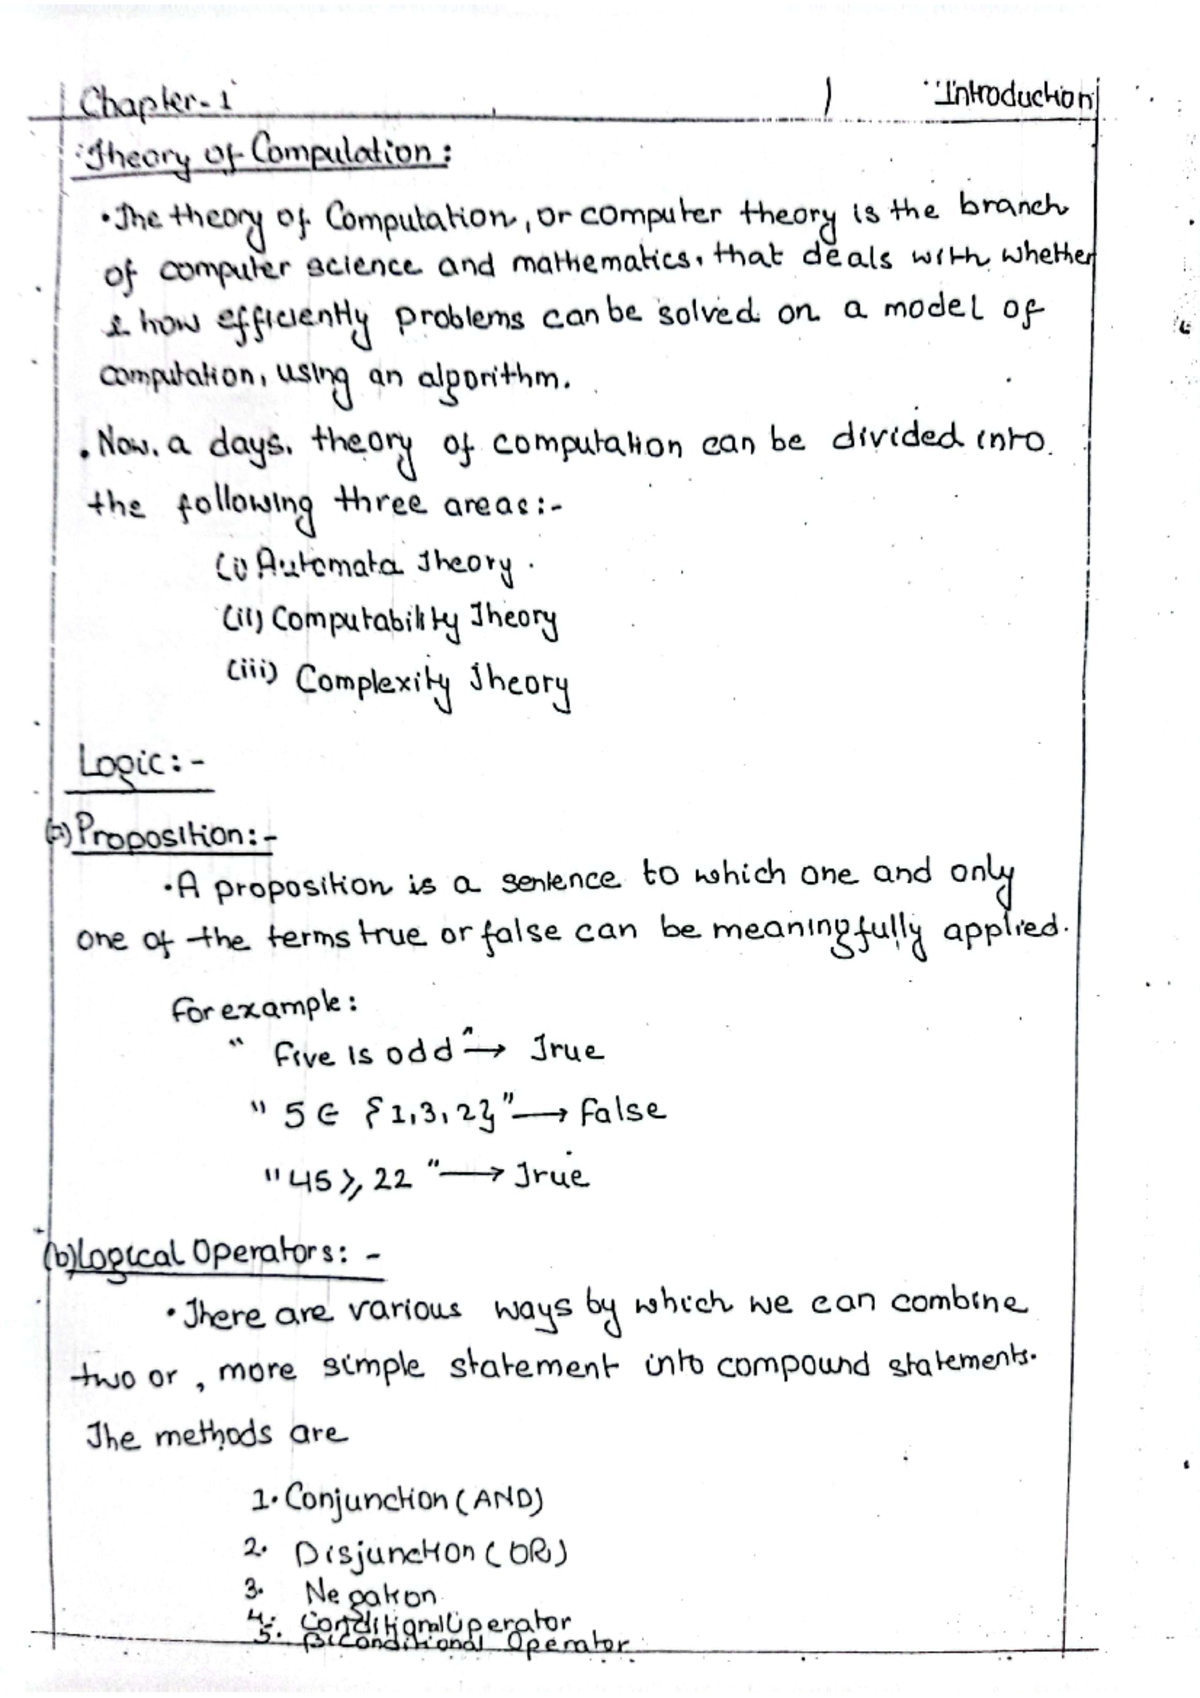 Chapter-1 1 "Introduction
Theory of Computation:
• The theory of Computation, or computer theory is the branch
of computer science and mathematics, that deals with whether
& how efficiently problems can be solved on a model of
computation, using an algorithm.
• Now, a days, theory of computation can be divided into
the following three areas:-
(i) Automata Theory.
(ii) Computability Theory
(iii) Complexity Theory
Logic:-
(a) Proposition:-
• A proposition is a sentence to which one and only
one of the terms true or false can be meaningfully applied.
For example:
" Five is odd" → True
" 5 ∈ {1,3,2}" → False
"45 ≥ 22" → True
(b) Logical Operators: -
• There are various ways by which we can combine
two or, more simple statement into compound statements.
The methods are
1. Conjunction (AND)
2. Disjunction (OR)
3. Negation
4. Conditional Operator
5. Biconditional Operator